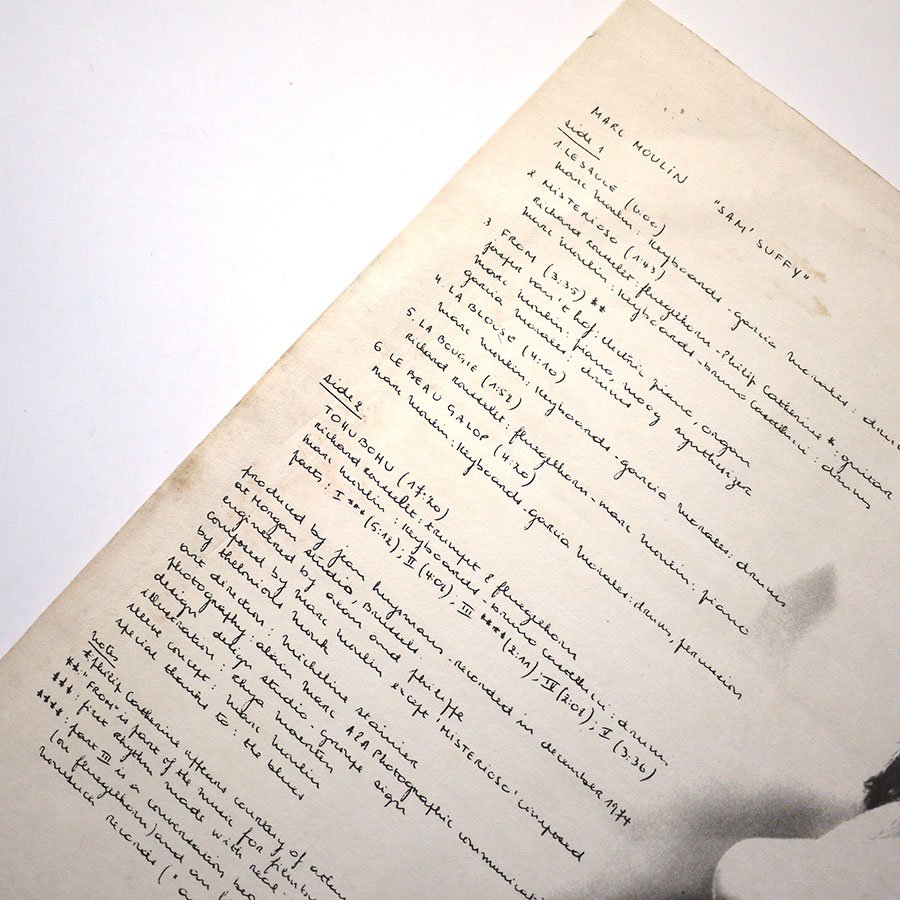 MARC MOULIN "SAM' SUFFY"
side 1
1. LE SAULE (6:00)
marc moulin: keyboards - garcia morales: drums
2. MISTERIOSO (1:43)
richard rousselet: fluegelhorn - Philip Catherine *: guitar
marc moulin: keyboards - bruno castellucci: drums
3. FROM (3:35) **
jasper van't hof: electric piano, organ
marc moulin: piano, moog synthesizer
garcia morales: drums
4. LA BLOUSE (4:10)
marc moulin: keyboards - garcia morales: drums
5. LA BOUGIE (1:52)
richard rousselet: fluegelhorn - marc moulin: piano
6. LE BEAU GALOP (4:20)
marc moulin: keyboards - garcia morales: drums, percussion
side 2
TOHUBOHU (17:20)
richard rousselet: trumpet & fluegelhorn
marc moulin: keyboards - bruno castellucci: drums
parts: I *** (5:12); II (4:02); III **** (2:11); IV (2:01); V (3:36)
produced by jean huysmans - recorded in december 1974
at Morgan studio, Brussels
engineered by axon and philippe
composed by marc moulin except 'MISTERIOSO' composed
by thelonious monk
art direction: micheline stainier
photography: alain marc A2A Photographic
design: design studio - groupe sign
illustration: rhya maerten
sleeve concept: marc moulin
special thanks to: the blues
notes
*: philip Catherine appears courtesy of
**: "FROM" is part of the music for
***: first rhythm made with
****: part III is a conversation
(on fluegelhorn) and
records